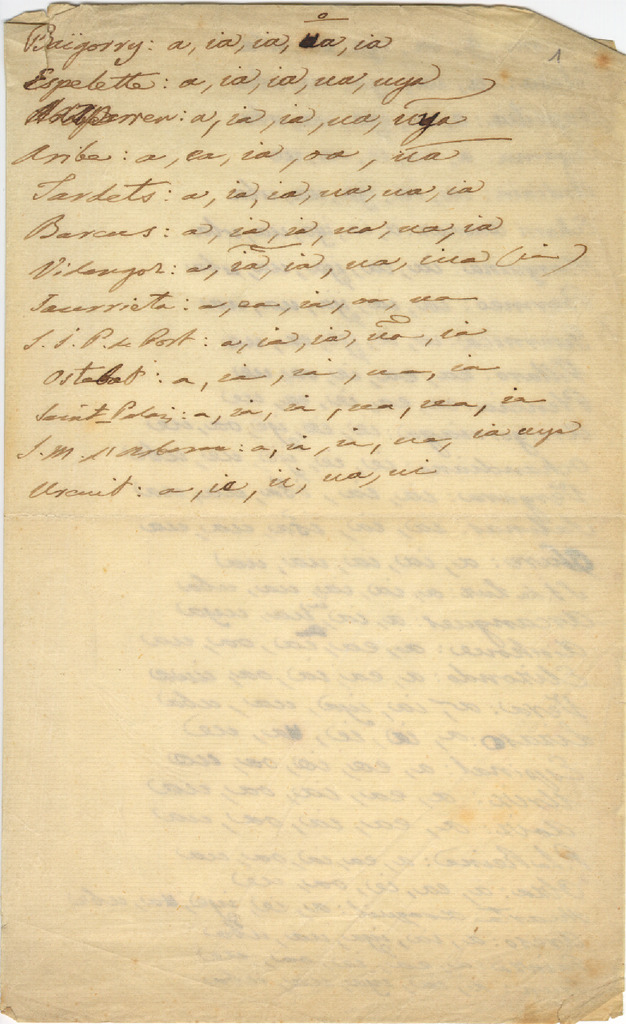 1
Baïgorry: a, ia, ia, ua, ia
Espelette: a, ia, ia, ua, uya
a, ia, ia, ua, uya
Aribe: a, ea, ia, oa, ua
Tardets: a, ia, ia, ua, ua, ia
Barcus: a, ia, ia, ua, ua, ia
Vidangoz: a, ia, ia, ua, iua (ia)
Jaurrieta: a, ea, ia, oa, ua
S. J. P. de Port: a, ia, ia, ua, ia
Ostabat: a, ia, ia, ua, ia
Saint-Palais: a, ia, ia, ua, ua, ia
S. M. d'Arberoue: a, ia, ia, ua, ia uya
Urcuit: a, ie, ii, ua, ui